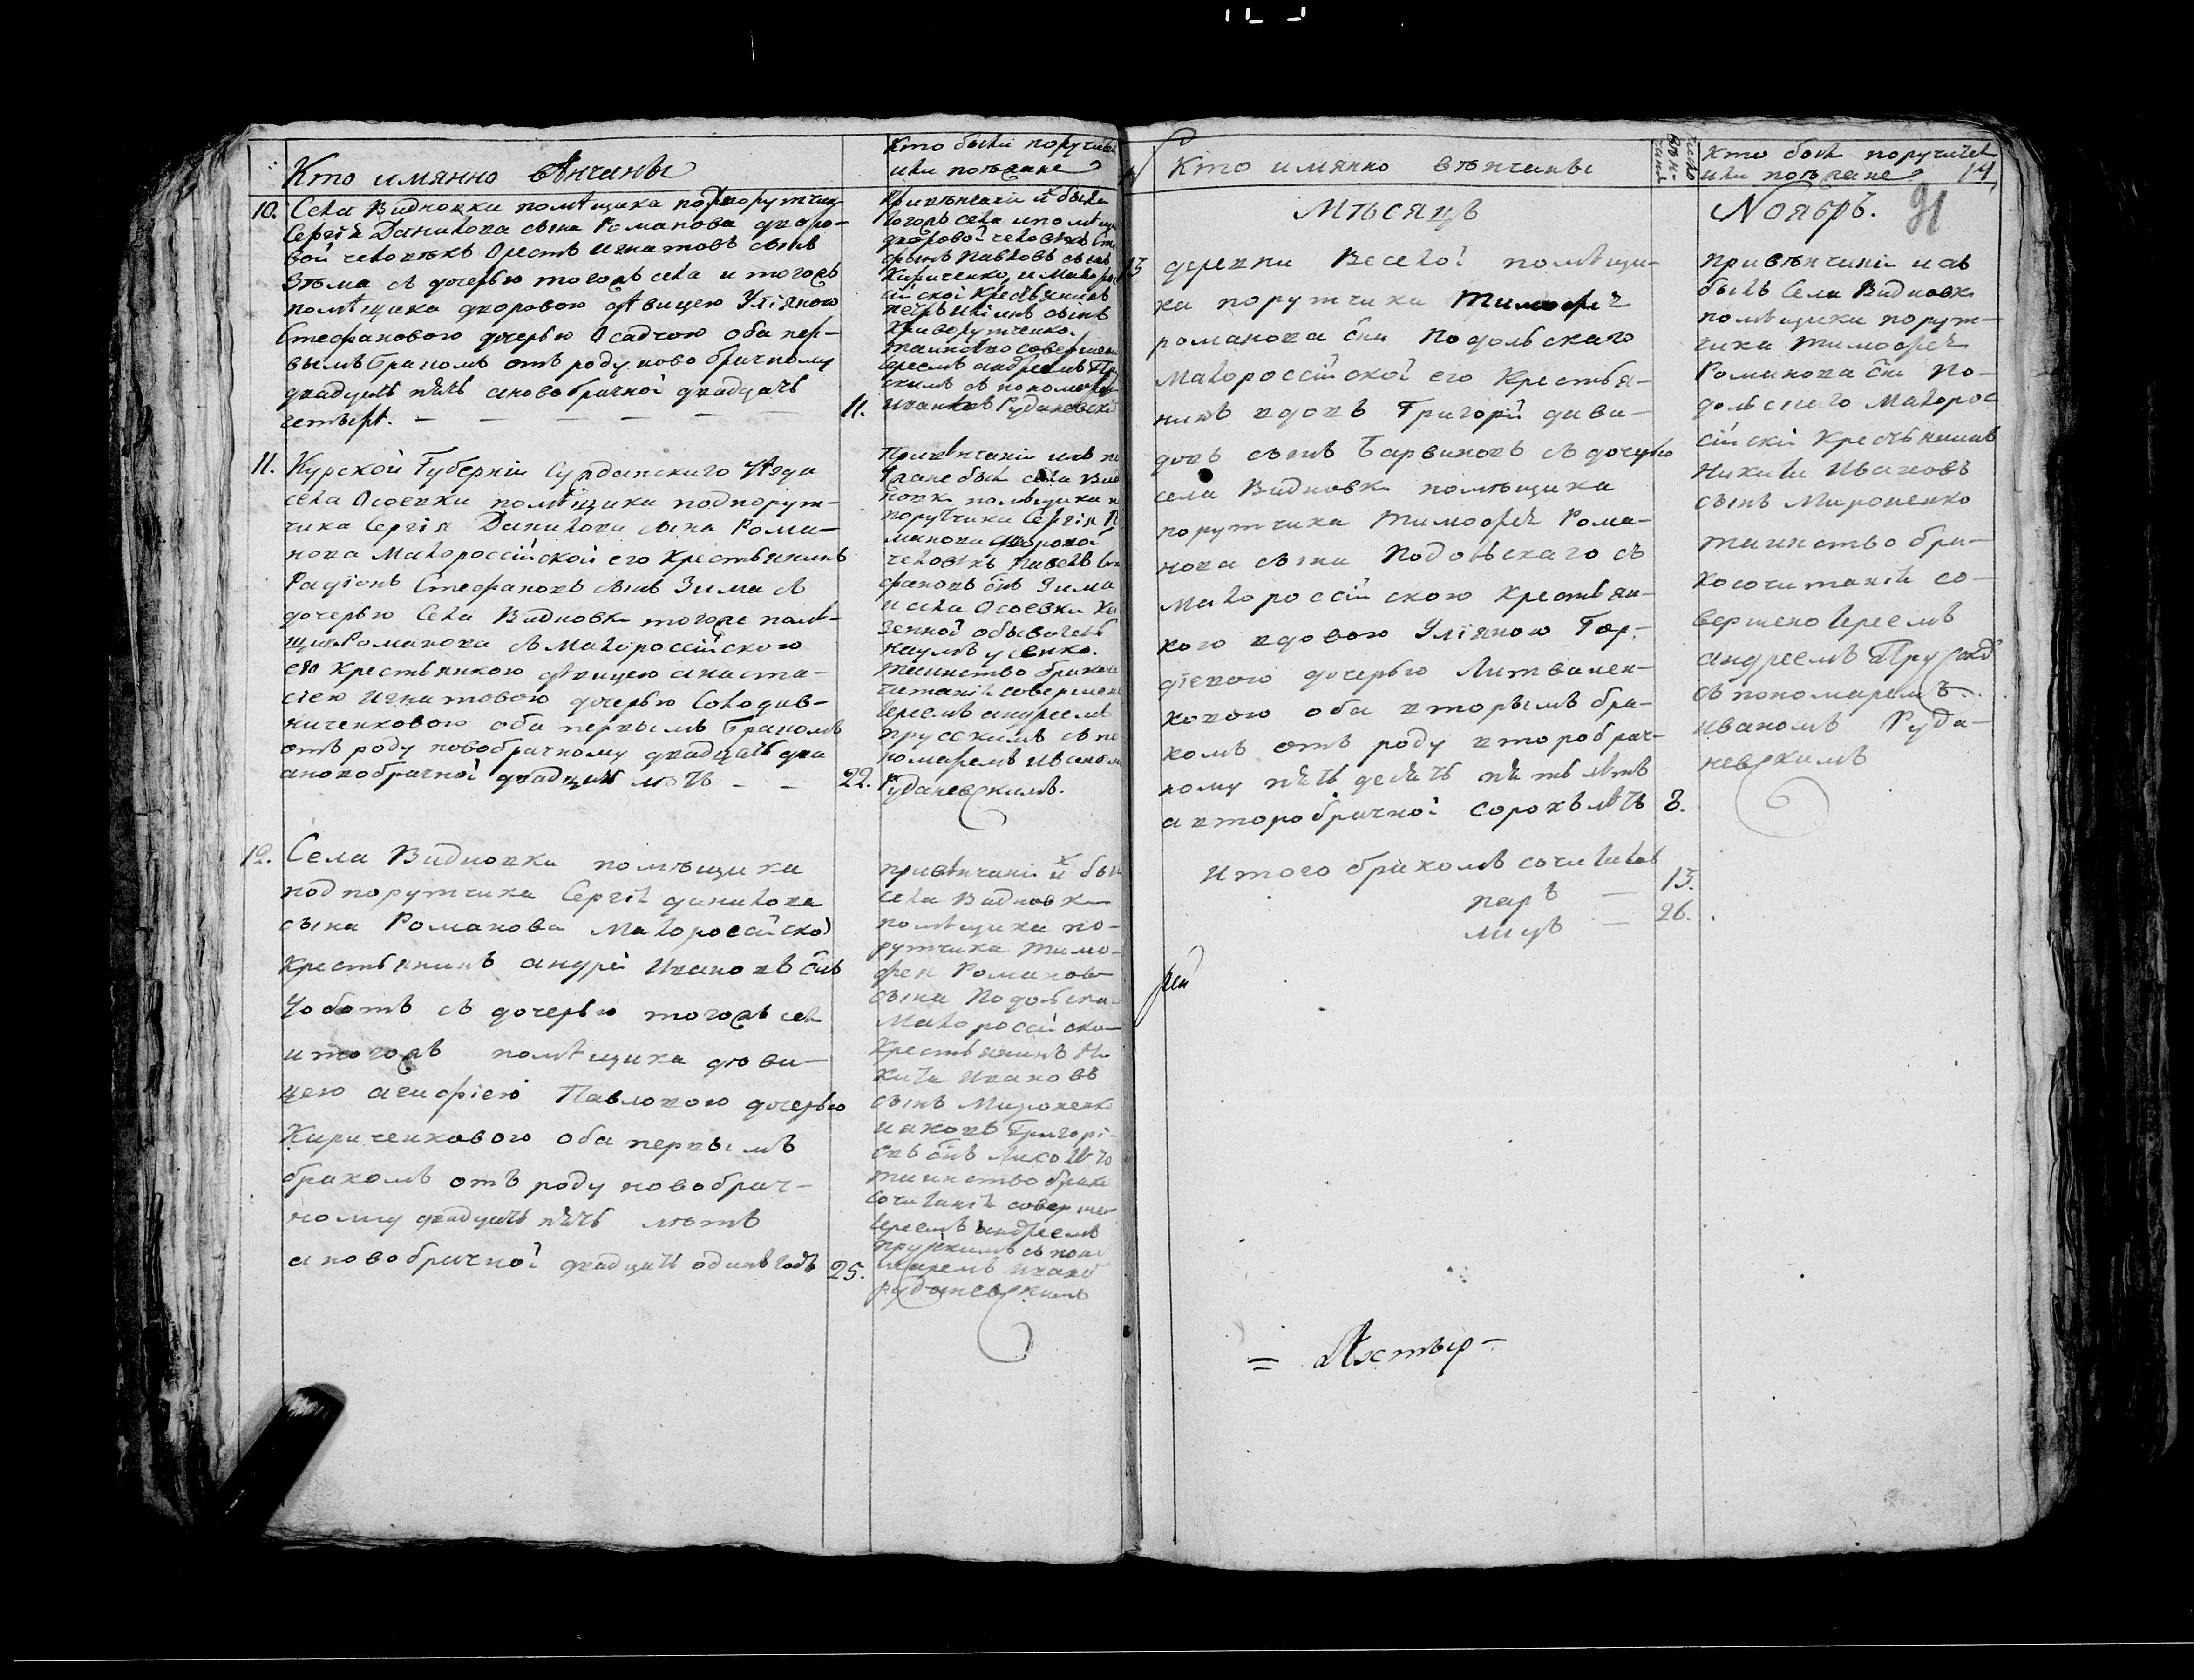 Кто имянно вѣнчаны
Кто были поручит
или поѣзжане
10. Села Видновки помѣщика подпорутчик
Сергія Данилова сына Романова дворо-
вой человѣкъ Орестъ Игнатовъ сынъ
Зѣма съ дочерью тогожъ села и тогожъ
помѣщика дворовою дѣвицею Уліяною
Стефановою дочерью Осадчою оба пер-
вымъ бракомъ отъ роду новобрачному
двадцать пять а новобрачной двадцать
четыре.
11.
Привѣнчаніи их были
тогожъ села и помѣщи
дворовой человѣкъ
Павловъ сынъ
Кириченко, и Малорос
сійской Крестьянинъ
сынъ
Криворутченко.
таинство соверше
Іереемъ Андреемъ Пру
скимъ съ пономарем
Иваномъ Руданевски
11. Курской Губерніи Суджанскаго уѣзда
села Осоевки помѣщика подпорут-
чика Сергія Данилова сына Рома-
нова Малороссійской его Крестьянинъ
Радіонъ Стефановъ сынъ Зима съ
дочерью Села Видновки тогоже помѣ-
щика Романова съ Малороссійскою
его крестьянкою дѣвицею Анаста-
сіею Игнатовою дочерью Солодов-
ниченковою оба первымъ бракомъ
отъ роду новобрачному двадцать два
а новобрачной двадцать лѣтъ
22.
Привѣнчаніи ихъ по
жане были села Вид
новки помѣщика п
порутчика Сергія Р
манова дворовой
человѣкъ Павелъ Сте
фановъ снъ Зима
и села Осоевки Ка
зенной обыватель
Наумъ Усенко.
таинство бракосо
читанія совершен
Іереемъ Андреемъ
Прускимъ съ по
номаремъ Иваном
Руданевскимъ.
12. Села Видновки помѣщика
подпорутчика Сергія Данилова
сына Романова Малоросійской
крестьянинъ Андрей Ивановъ снъ
Чоботъ съ дочерью тогожъ села
и тогожъ помѣщика дѣви-
цею Агафіею Павловою дочерью
Кириченковою оба первымъ
бракомъ отъ роду новобрач-
ному двадцать пять лѣтъ
а новобрачной двадцать одинъ годъ
25.
привѣнчаніи их был
села Видновки
помѣщика по-
рутчика Тимо-
фея Романова
сына Подольска
Малороссійско
Крестьянинъ Ни
кита Ивановъ
сынъ Мироненко
Григорі-
евъ снъ
таинство брако
сочитанія соверше
Іереемъ Андреемъ
Прускимъ съ поно
маремъ Ивано
Руданевскимъ
Кто имянно вѣнчаны
Число
вѣн-
чаній
Кто были поручител
или поѣзжане
14
Мѣсяцъ
Ноябрь.
91
13 деревни Веселой помѣщи-
ка порутчика Тимофея
Романова сна Подольскаго
Малороссійской его Крестья-
нинъ вдовъ Григорій Дави-
довъ сынъ Барвиновъ съ дочерью
села Видновки помѣщика
порутчика Тимофея Рома-
нова сына Подольскаго съ
Малороссійскою Крестьян-
кою вдовою Уліяною Гор-
діевою дочерью Литвинен-
ковою оба вторымъ бра-
комъ отъ роду второбрач-
ному пятьдесятъ пять лѣтъ
а второбрачной сорокъ лѣтъ
8.
привѣнчаніи ихъ
былъ Села Видновки
помѣщика порут-
чика Тимофея
Романова сна По-
дольскаго Малорос
сійскій Крестьянинъ
Никита Ивановъ
сынъ Мироненко
таинство бра-
косочитанія со-
вершено Іереемъ
Андреемъ Пруск
съ пономаремъ
Иваномъ Руда-
невскимъ
Итого бракомъ сочитались
паръ — 13.
лицъ — 26.
рей
= Ахтыр-